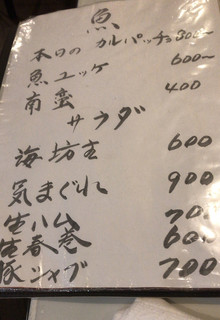 魚
本日の カルパッチョ 800〜
魚ユッケ 600〜
南蛮 400
サラダ
海坊主 600
気まぐれ 900
生ハム 700
生春巻 600
豚シャブ 700